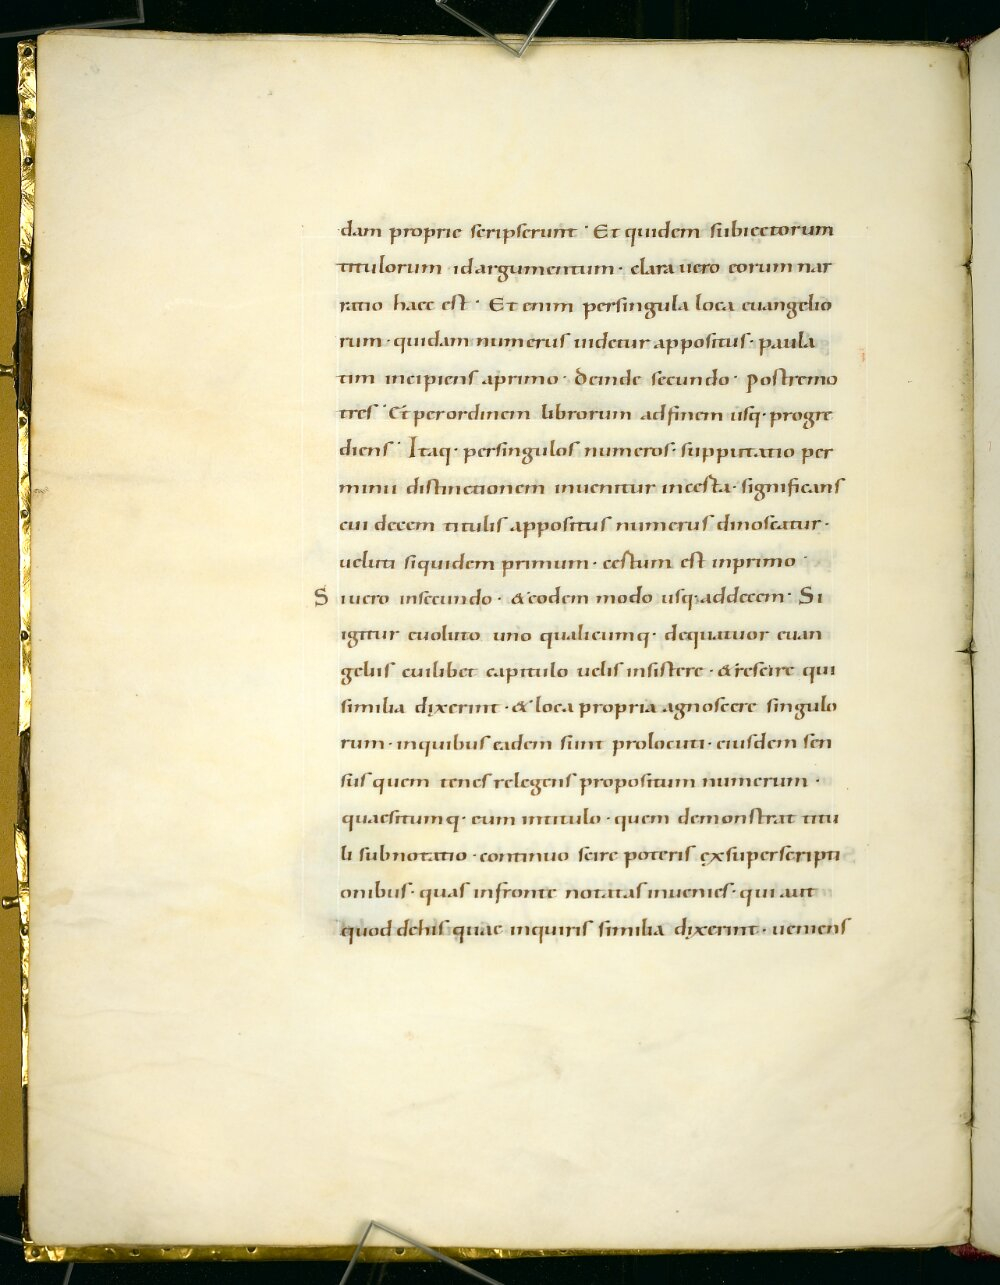 dam proprie scripserunt · Et quidem subiectorum
titulorum · id argumentum · clara uero eorum nar
ratio haec est · Et enim persingula loca euangelio
rum · quidam numerus uidetur appositus · paula
tim incipiens aprimo · deinde secundo · postremo
tres · Et perordinem librorum adfinem usq· progre
diens · Itaq· persingulos numeros · supputatio per
minii distinctionem inuenitur incesta · significans
cui decem titulis appositus numerus dinoscatur ·
ueluti siquidem primum · cestum est inprimo ·
S iuero insecundo · & eodem modo usq· addecem · Si
igitur euoluto uno qualicumq· dequatuor euan
geliis cuilibet capitulo uelis insistere · & rescire qui
similia dixerint · & loca propria agnoscere singulo
rum · inquibus eadem sunt prolocuti · eiusdem sen
sus quem tenes relegens propositum numerum ·
quaesitumq· eum intitulo · quem demonstrat titu
li subnotatio · continuo scire poteris exsuperscripti
onibus · quas infronte notatas inuenies · qui aut
quod dehis quae inquiris similia dixerint · ueniens